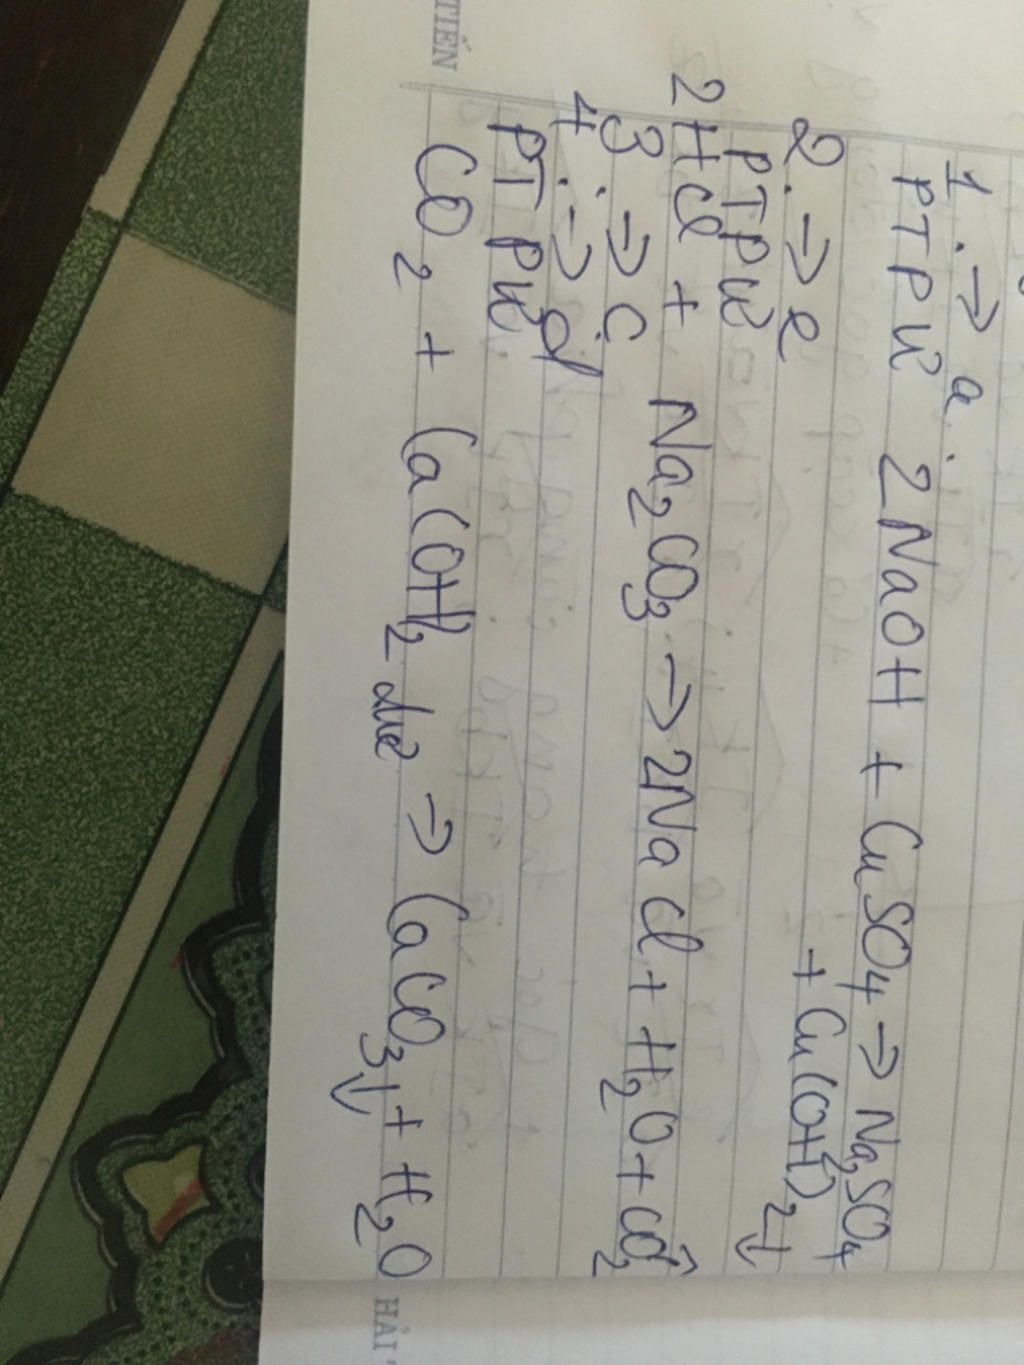 1. → a.
PTPƯ 2NaOH + CuSO4 → Na2SO4
+ Cu(OH)2↓
2. → e
PTPƯ
2HCl + Na2CO3 → 2NaCl + H2O + CO2↑
3 → c
4. → d
PTPƯ.
CO2 + Ca(OH)2 dư → CaCO3↓ + H2O
TIẾN
HẢI